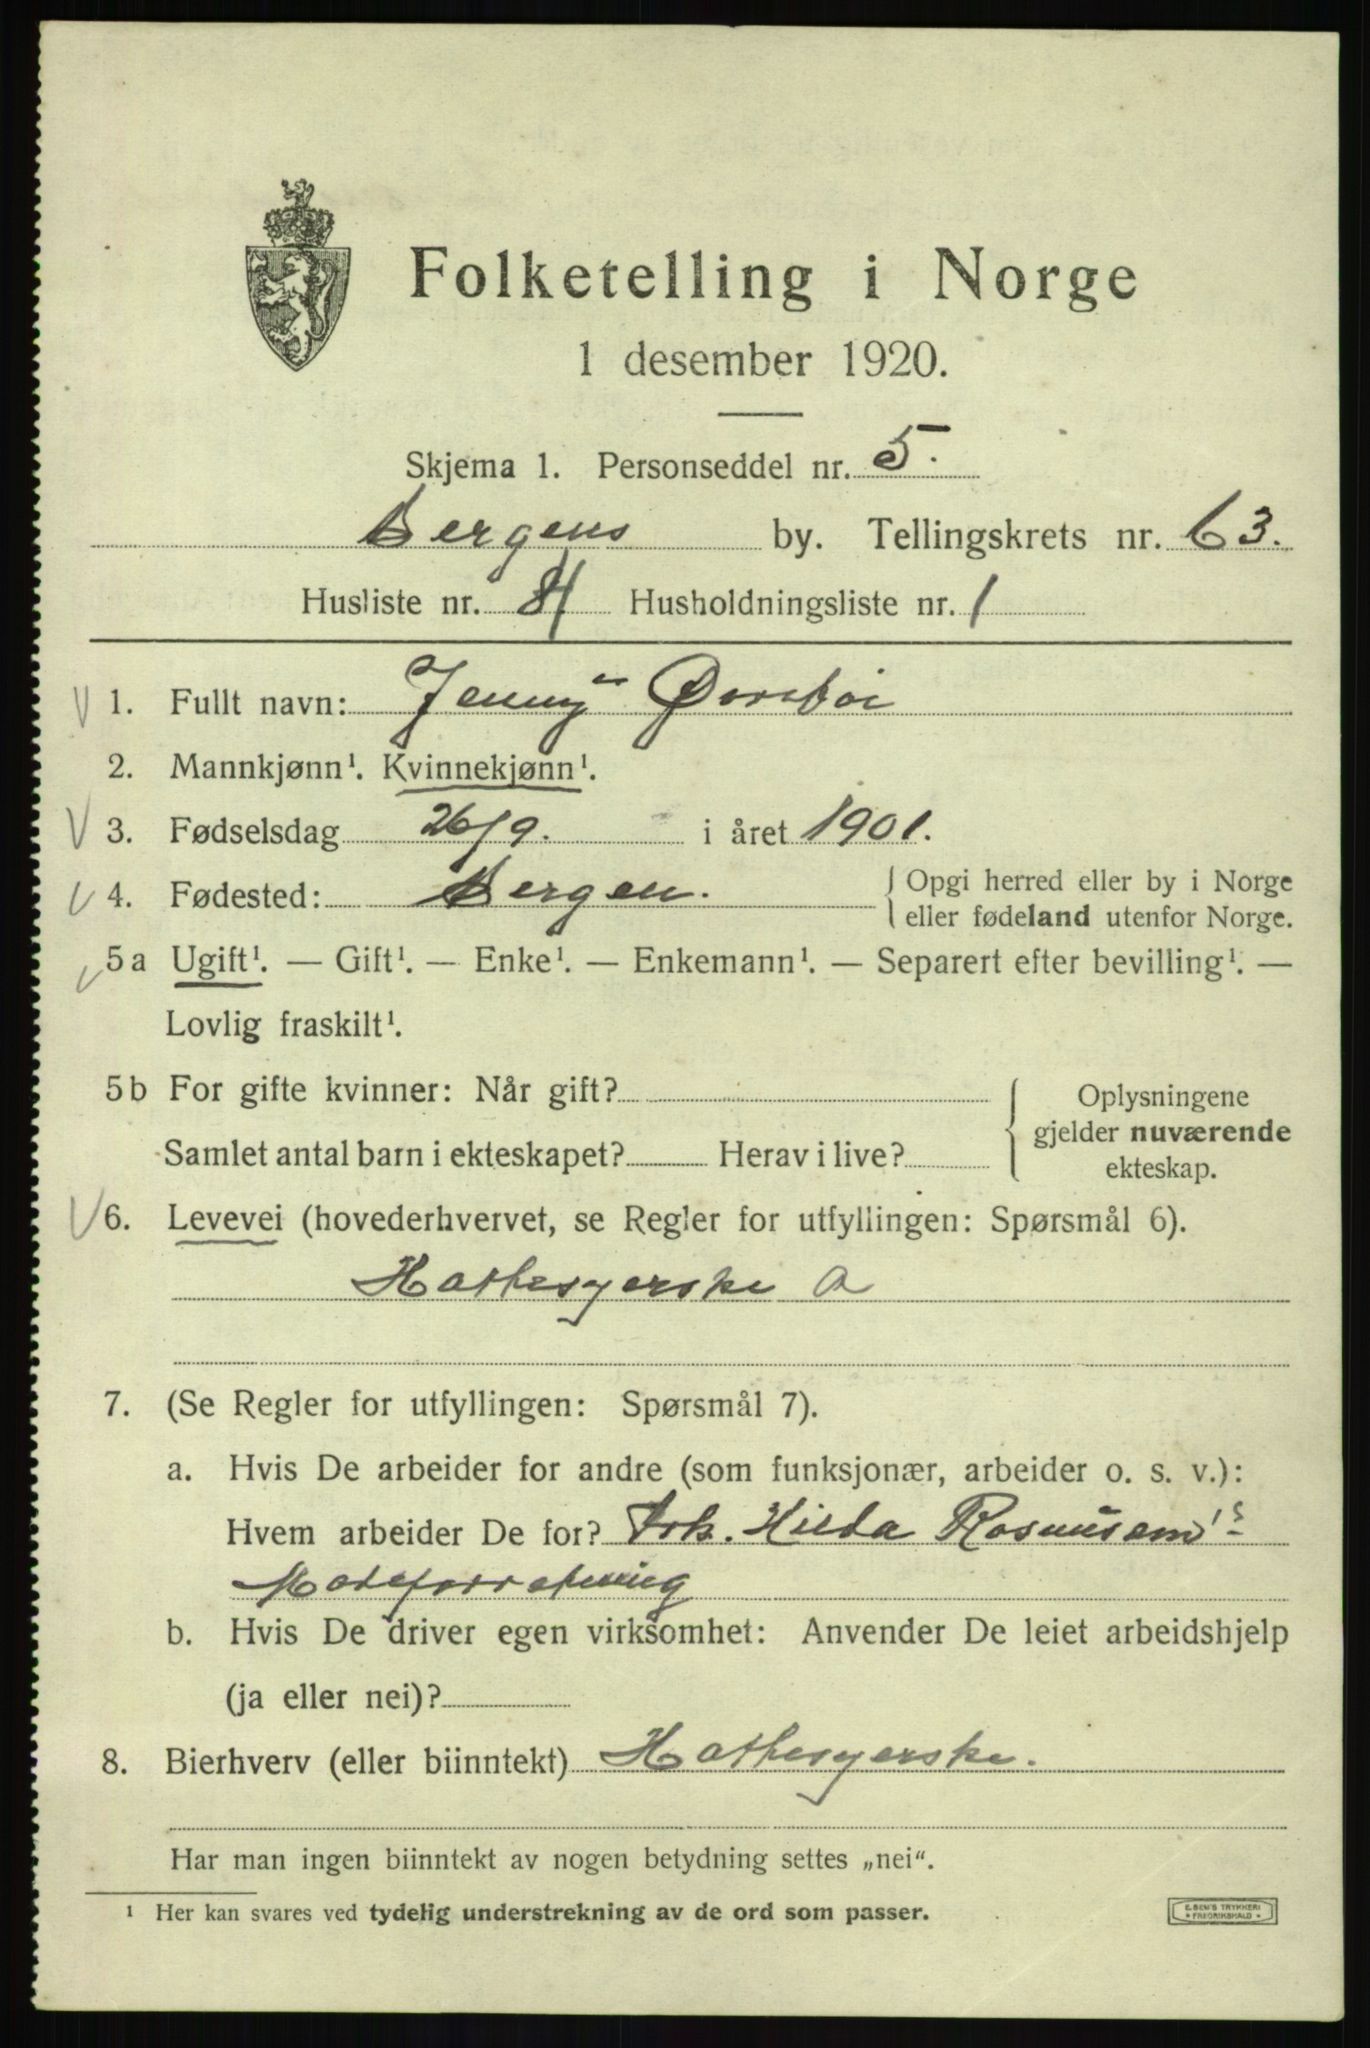 Folketelling i Norge
1 desember 1920.
Skjema 1. Personseddel nr. 5.
Bergens by. Tellingskrets nr. 63.
Husliste nr. 4 Husholdningsliste nr. 1
1. Fullt navn: Jenny Ørrebøi
2. Mannkjønn¹. Kvinnekjønn¹.
3. Fødselsdag 26/9. i året 1901.
4. Fødested: Bergen. Opgi herred eller by i Norge
eller fødeland utenfor Norge.
5a Ugift¹. — Gift¹. — Enke¹. — Enkemann¹. — Separert efter bevilling¹. —
Lovlig fraskilt¹.
5b For gifte kvinner: Når gift?
Samlet antal barn i ekteskapet? Herav i live?
Oplysningene
gjelder nuværende
ekteskap.
6. Levevei (hovederhvervet, se Regler for utfyllingen: Spørsmål 6).
Hattesyerske a
7. (Se Regler for utfyllingen: Spørsmål 7).
a. Hvis De arbeider for andre (som funksjonær, arbeider o. s. v.):
Hvem arbeider De for? Frk. Hilda Rasmussen's
Moteforretning
b. Hvis De driver egen virksomhet: Anvender De leiet arbeidshjelp
(ja eller nei)?
8. Bierhverv (eller biinntekt) Hattesyerske.
Har man ingen biinntekt av nogen betydning settes „nei“.
¹ Her kan svares ved tydelig understrekning av de ord som passer.
E. SEM'S TRYKKERI
FREDRIKSHALD